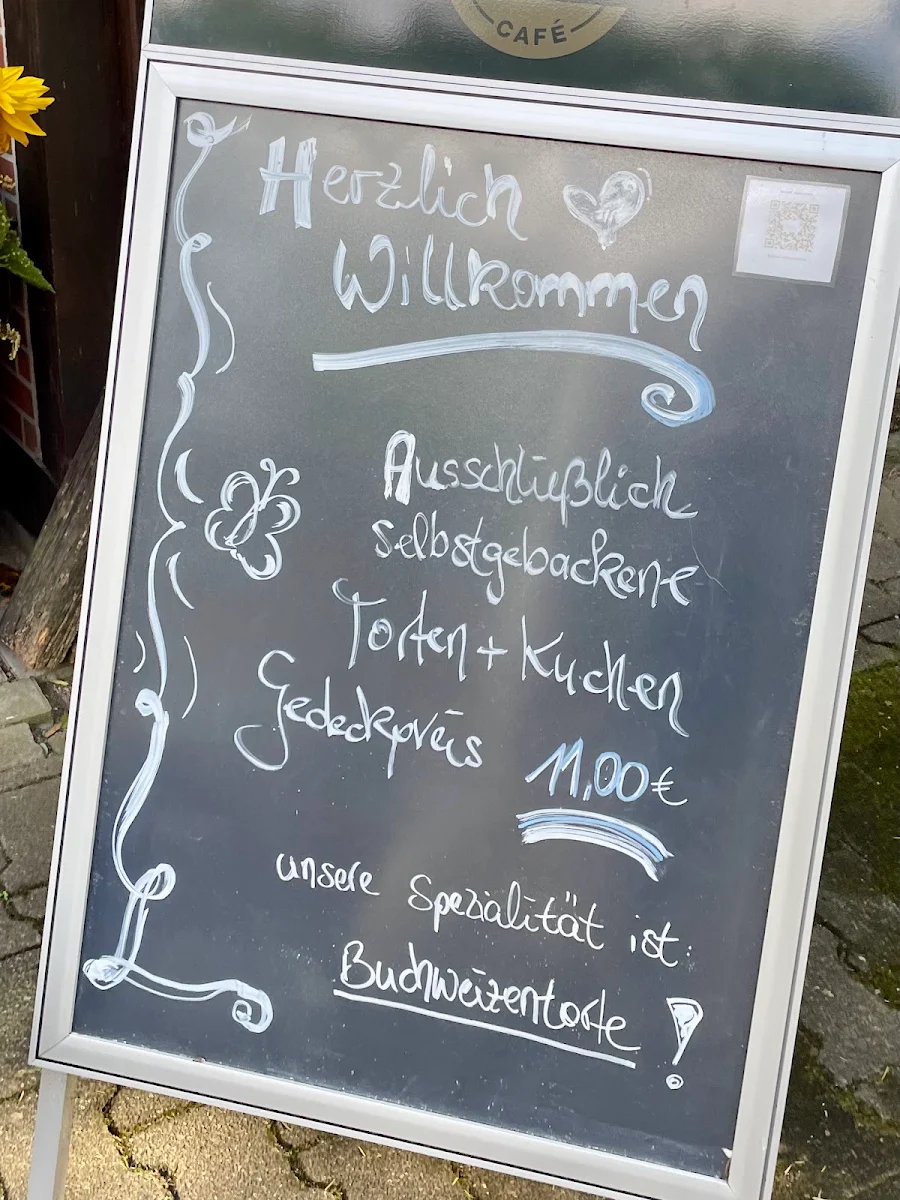 CAFÉ
Herzlich
Willkommen
Ausschließlich
selbstgebackene
Torten + Kuchen
Gedeckpreis 11,00€
unsere Spezialität ist:
Buchweizentorte!